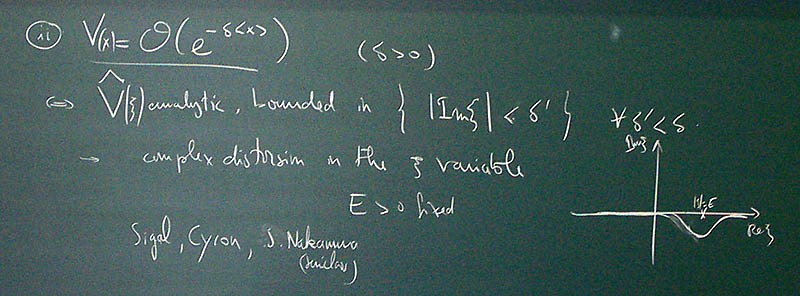 (ii) V(x) = O(e^{-δ<x>}) (δ>0)
⇔ V̂(ξ) analytic, bounded in { |Im ξ| < δ' } ∀ δ' < δ.
→ complex distorsion in the ξ variable
E > 0 fixed
Sigal, Cycon, S. Nakamura
Im ξ
Re ξ